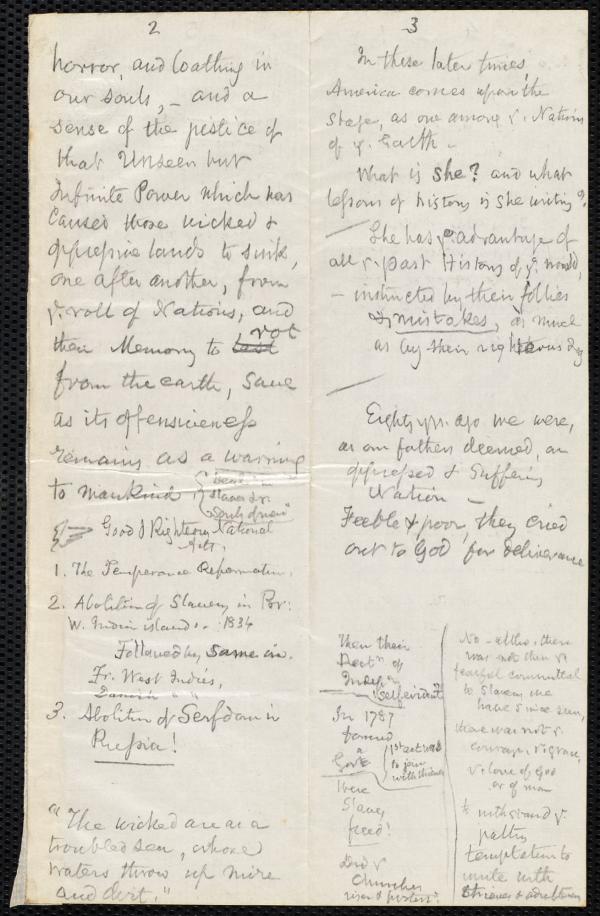 2
horror, and loathing in
our souls, - and a
sense of the justice of
that Unseen but
Infinite Power which has
caused those wicked &
oppressive lands to sink,
one after another, from
y. roll of Nations, and
their Memory to rot
from the earth, save
as its offensiveness
remains as a warning
to mankind.
Slaves & r.
Souls of men"
Good & Righteous National
Acts.
1. The Temperance Reformation.
2. Abolition of Slavery in
W. India islands. 1834
Followed by same in.
Fr. West Indies,
Danish " "
3. Abolition of Serfdom in
Russia!
"The wicked are as a
troubled sea, whose
waters throw up mire
and dirt."
3
In these later times,
America comes upon the
stage, as one among y. Nations
of y. Earth -
What is she? and what
lessons of history is she writing?
She has y. advantage of
all y. past History of y. world,
- instructed by their follies
& mistakes, as much
as by their righteous
Eighty yrs. ago we were,
as our fathers deemed, an
oppressed & suffering
Nation -
Feeble & poor, they cried
out to God for deliverance
Then their
Decln of
Indep
"self evident"
In 1787
formed
a
Govt
1st act was
to join
with thieves
Were
Slaves
freed!
Did y.
Churches
rise & protest?
No - altho. there
was not then y.
fearful committal
to Slavery we
have since seen,
there was not y.
courage, y. grace,
y. love of God
or of man
to withstand y.
paltry
temptation to
unite with
thieves & adulterers